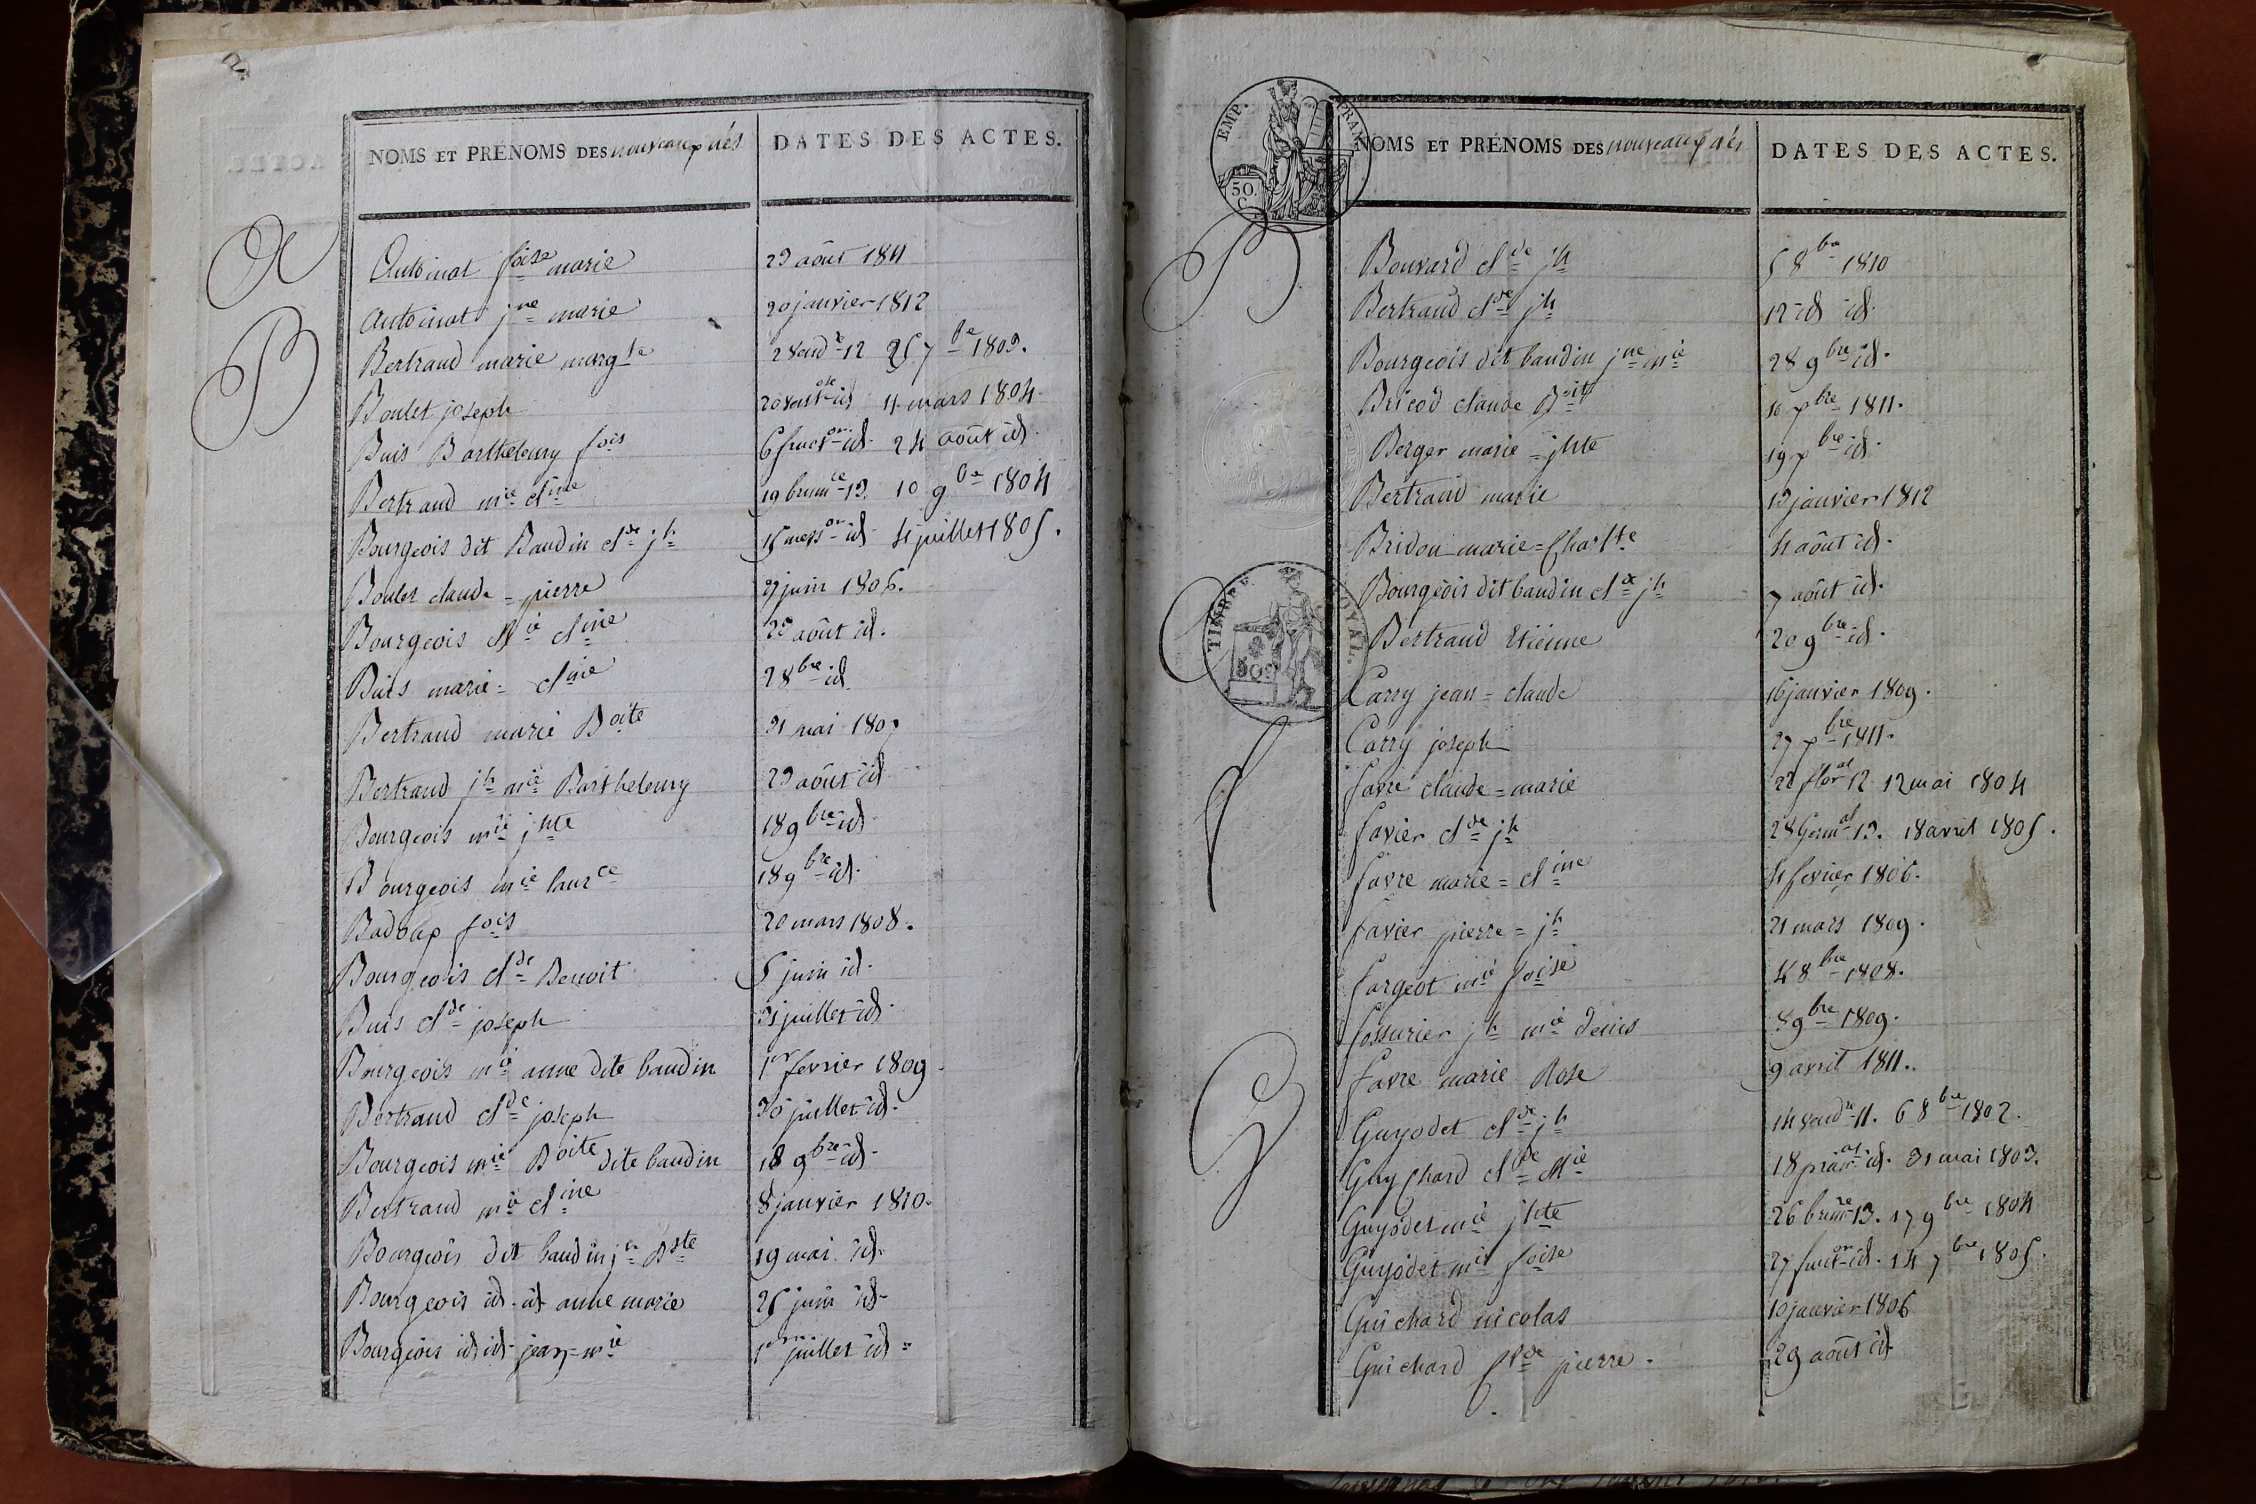 NOMS ET PRÉNOMS DES nouveaux nés
DATES DES ACTES.
A
Antoinat foise marie 23 août 1811
Antoinat jne marie 20 janvier 1812
B
Bertrand marie margte 2 vendre 12 25 7bre 1803.
Boulet joseph 20 ventose id 11 mars 1804
Buis Barthelemy fois 6 fructor id. 24 août id.
Bertrand mie cline 19 brumre 13. 10 9bre 1804
Bourgeois dit Baudin clde jh 15 messor id 4 juillet 1805.
Boulet claude = pierre 27 juin 1806.
Bourgeois Mie cline 20 août id.
Buis marie = cline 2 8bre id
Bertrand marie Boite 31 mai 1807
Bertrand jh mie Barthelemy 23 août id
Bourgeois mie jhte 18 9bre id
Bourgeois mie laurce 18 9bre id.
Badoux fois 20 mars 1808.
Bourgeois clde Benoit 5 juin id.
Buis clde joseph 31 juillet id.
Bourgeois mie anne dite baudin 1er fevrier 1809.
Bertrand clde joseph 30 juillet id.
Bourgeois mie Boite dite baudin 18 9bre id.
Bertrand mie cline 8 janvier 1810.
Bourgeois dit baudin jn Bste 19 mai id.
Bourgeois id. id anne marie 25 juin id.
Bourgeois id id jean = mie 1er juillet id =
EMP. FRAN
50. C.
NOMS ET PRÉNOMS DES nouveaux nés
DATES DES ACTES.
B
Bouvard clde jh 5 8bre 1810
Bertrand clde jh 12 id id.
Bourgeois dit baudin jne mie 28 9bre id.
Bricod claude Boit 10 xbre 1811.
Berger marie = jhte 19 xbre id.
Bertrand marie 13 janvier 1812
Bridon marie = Charlte 4 août id.
Bourgeois dit baudin clde jh 7 août id.
Bertrand Etienne 20 9bre id.
TIMBRE ROYAL.
50c
C
Carry jean = claude 16 janvier 1809.
Carry joseph 27 xbre 1811.
f
favre claude = marie 22 floral 12 12 mai 1804
favier clde jh 28 Germal 13. 18 avril 1805.
favre marie = cline 4 fevrier 1806.
favier pierre = jh 21 mars 1809.
fargeot mie foise 4 8bre 1808.
fossurier jh mie denis 8 9bre 1809.
favre marie Rose 9 avril 1811..
G
Guyodet clde jh 14 vendre 11. 6 8bre 1802.
Guychard clde Mie prairal id. 31 mai 1803.
Guyodet mie jhte 26 brumre 13. 17 9bre 1804
Guyodet mie foise 27 fructor id. 14 7bre 1805.
Guichard nicolas 10 janvier 1806
Guichard clde pierre. 29 août id